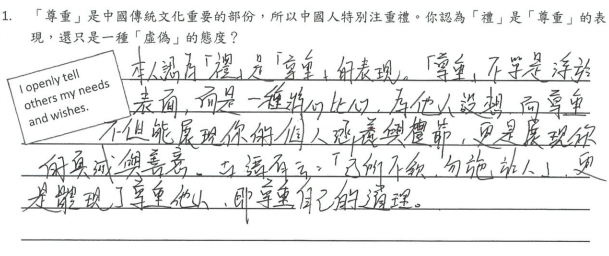 1. 「尊重」是中國傳統文化重要的部份，所以中國人特別注重禮。你認為「禮」是「尊重」的表
現，還只是一種「虛偽」的態度？
I openly tell
others my needs
and wishes.
本人認為「禮」是「尊重」的表現。「尊重」不單是浮於
表面，而是一種將心比心，為他人設想。而尊重
不但能展現你的個人涵養與禮節，更是展現你
的真誠與善意。古語有云：「己所不欲，勿施於人」，更
是體現了尊重他人，即尊重自己的道理。